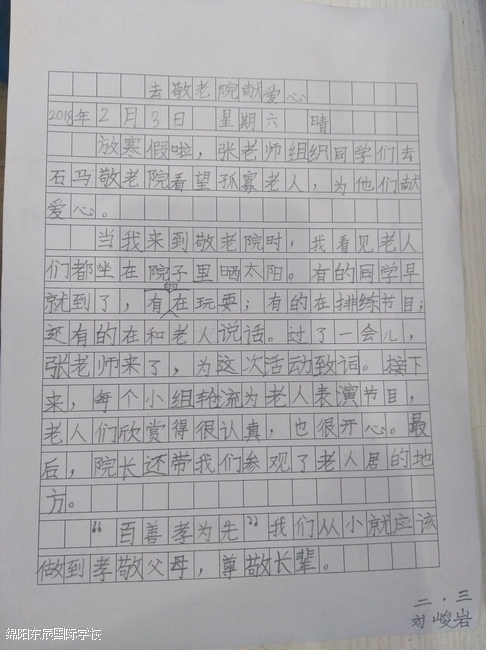 去敬老院献爱心
2018年2月3日 星期六 晴
放寒假啦，张老师组织同学们去
石马敬老院看望孤寡老人，为他们献
爱心。
当我来到敬老院时，我看见老人
们都坐在院子里晒太阳。有的同学早
就到了，有的在玩耍；有的在排练节目；
还有的在和老人说话。过了一会儿，
张老师来了，为这次活动致词。接下
来，每个小组轮流为老人表演节目，
老人们欣赏得很认真，也很开心。最
后，院长还带我们参观了老人居的地
方。
“百善孝为先”我们从小就应该
做到孝敬父母，尊敬长辈。
二．三
刘峻岩
绵阳东辰国际学校